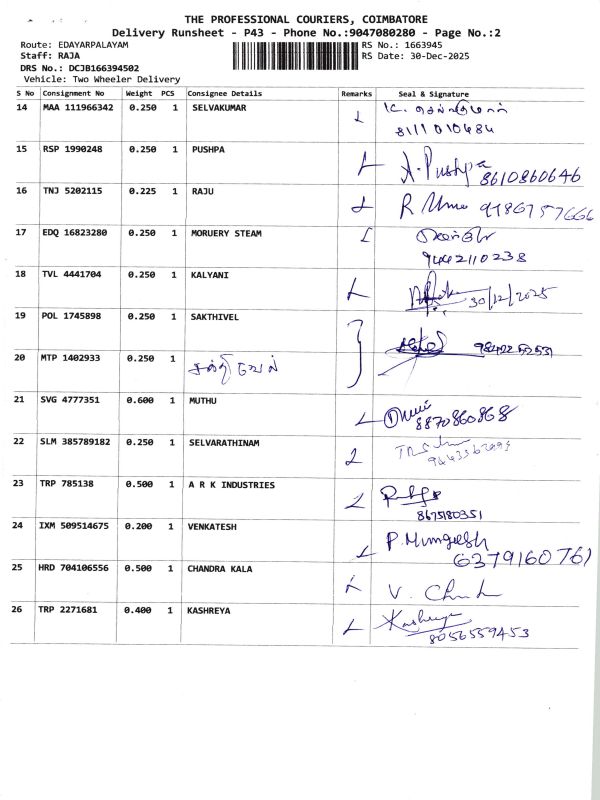 THE PROFESSIONAL COURIERS, COIMBATORE
Delivery Runsheet - P43 - Phone No.:9047080280 - Page No.:2
Route: EDAYARPALAYAM RS No.: 1663945
Staff: RAJA RS Date: 30-Dec-2025
DRS No.: DCJB166394502
Vehicle: Two Wheeler Delivery
S No Consignment No Weight PCS Consignee Details Remarks Seal & Signature
14 MAA 111966342 0.250 1 SELVAKUMAR
8111010484
15 RSP 1990248 0.250 1 PUSHPA A. Pushpa
8610860646
16 TNJ 5202115 0.225 1 RAJU R Uma
17 EDQ 16823280 0.250 1 MORUERY STEAM
9442110238
18 TVL 4441704 0.250 1 KALYANI 30/12/2025
19 POL 1745898 0.250 1 SAKTHIVEL
20 MTP 1402933 0.250 1 சக்தி வேல்
21 SVG 4777351 0.600 1 MUTHU
8870860868
22 SLM 385789182 0.250 1 SELVARATHINAM
23 TRP 785138 0.500 1 A R K INDUSTRIES
8675180351
24 IXM 509514675 0.200 1 VENKATESH P. Murugesh
6379160761
25 HRD 704106556 0.500 1 CHANDRA KALA
26 TRP 2271681 0.400 1 KASHREYA Kashreya
8056559453